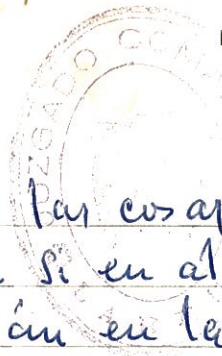 JUZGADO COM
las cosas
. Si en al
án en la